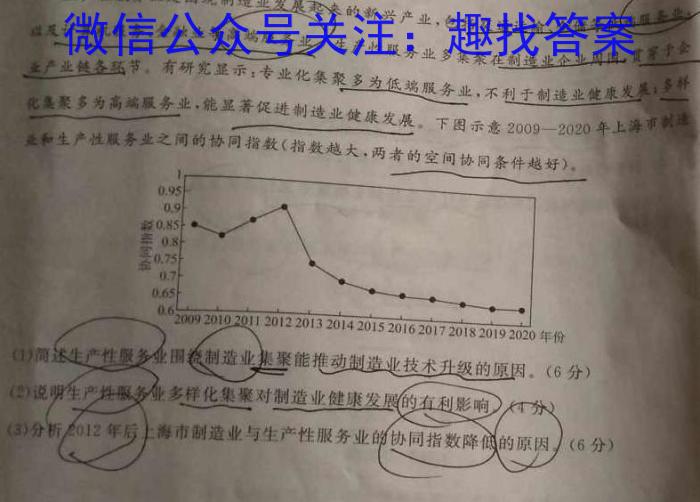 发展起来的新兴产业
微信公众号关注：趣找答案
业产业链各环节。有研究显示：专业化集聚多为低端服务业，不利于制造业健康发展；多样
化集聚多为高端服务业，能显著促进制造业健康发展。下图示意2009—2020年上海市制造
业和生产性服务业之间的协同指数（指数越大，两者的空间协同条件越好）。
协同指数
1
0.95
0.9
0.85
0.8
0.75
0.7
0.65
0.6
2009 2010 2011 2012 2013 2014 2015 2016 2017 2018 2019 2020 年份
(1)简述生产性服务业围绕制造业集聚能推动制造业技术升级的原因。(6分)
(2)说明生产性服务业多样化集聚对制造业健康发展的有利影响。(4分)
(3)分析2012年后上海市制造业与生产性服务业的协同指数降低的原因。(6分)